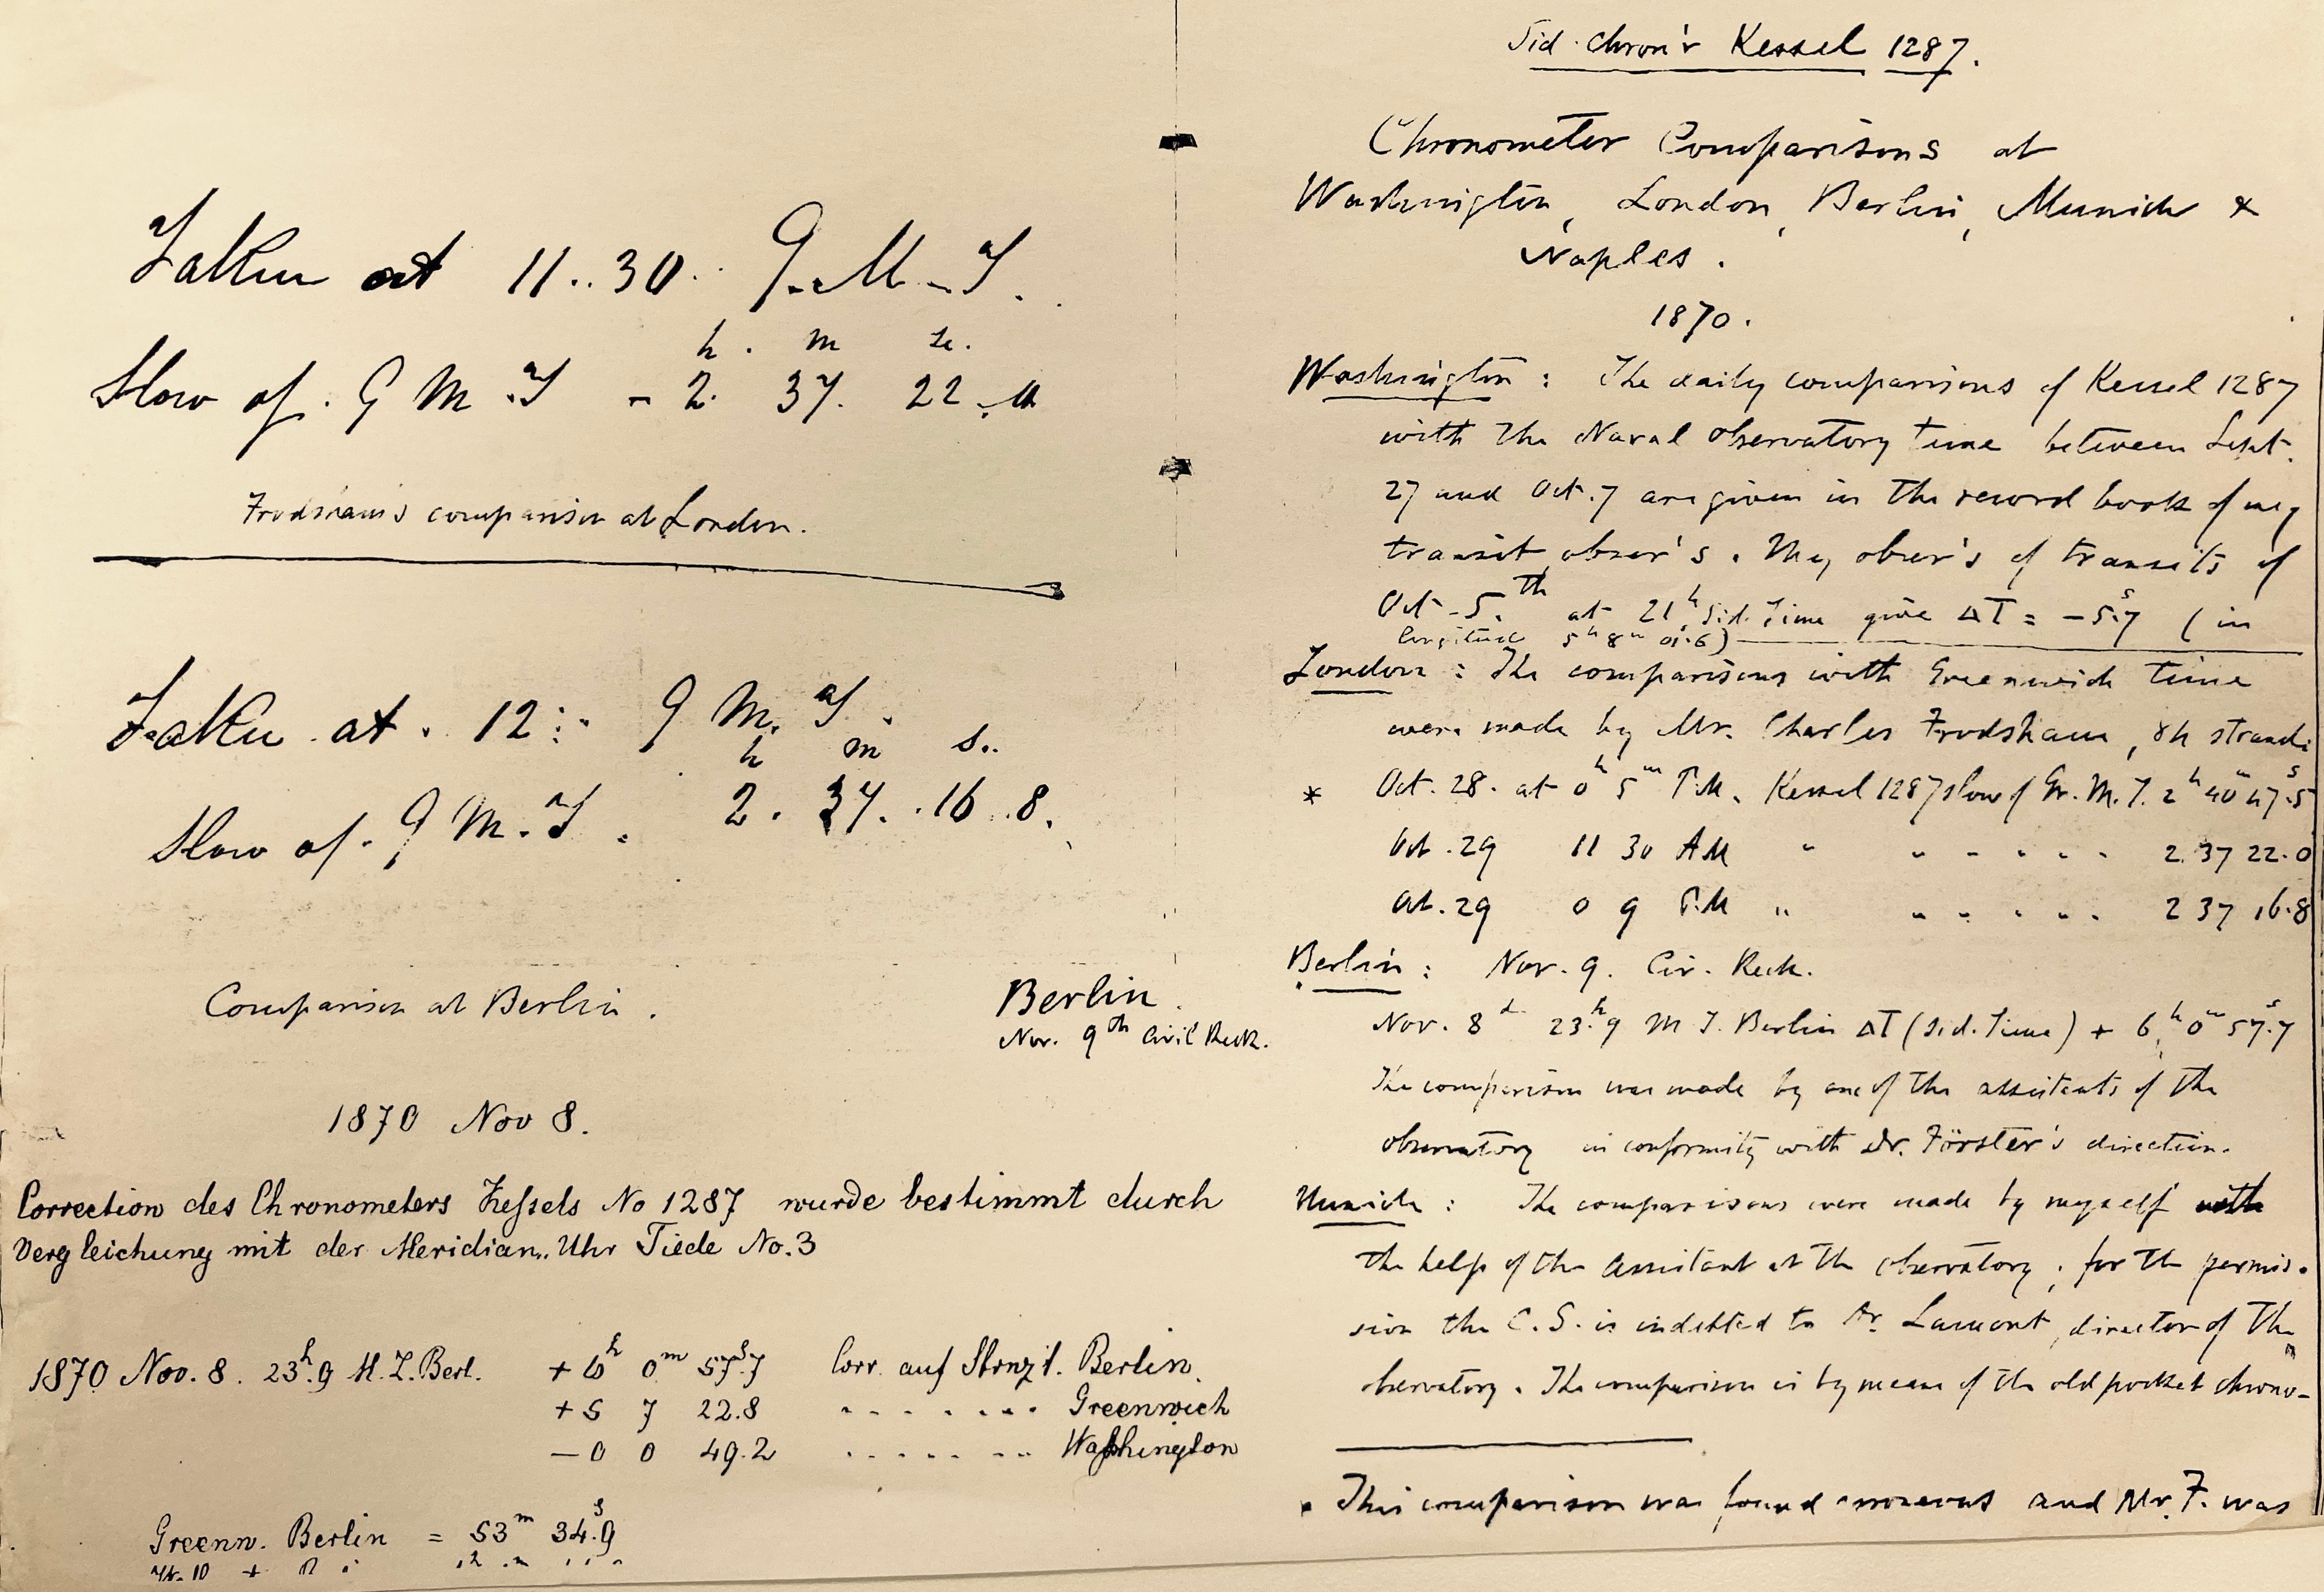 Taken at 11..30.. G.M.T.
h. m se.
Slow of. G M.T - 2. 37. 22.0
Frodsham's comparison at London.
Taken at. 12: G M.T.
h m s..
Slow of. G M.T. 2. 37. .16..8.
Comparison at Berlin.
Berlin.
Nov. 9th Civil Reck.
1870 Nov 8.
Correction des Chronometers Kessels No 1287 wurde bestimmt durch
Vergleichung mit der Meridian-Uhr Tiede No.3
1870 Nov. 8. 23h.9 M.Z. Berl. + 6h 0m 57s.7 Corr. auf Strnzt. Berlin.
+ 5 7 22.8 - - - - - - - Greenwich
— 0 0 49.2 - - - - - - - Washington
Greenw. Berlin = 53m 34s.9
Sid. Chron'r Kessel 1287.
Chronometer Comparisons at
Washington, London, Berlin, Munich &
Naples.
1870.
Washington: The daily comparisons of Kessel 1287
with the Naval Observatory time between Sept.
27 and Oct. 7 are given in the record book of my
transit obser's. My obser's of transits of
Oct. 5.th at 21h Sid. Time give ΔT = -5s.7 (in
longitude 5h 8m 0s.6)
London: The comparisons with Greenwich time
were made by Mr. Charles Frodsham, 84 Strand:
* Oct. 28. at 0h 5m P.M. Kessel 1287 slow of Gr. M.T. 2h 40m 47s.5
Oct. 29 11 30 AM " " " " " " 2. 37 22.0
Oct. 29 0 9 P.M " " " " " " 2 37 16.8
Berlin: Nov. 9. Civ. Reck.
Nov. 8d 23h.9 M T. Berlin ΔT (sid. Time) + 6h 0m 57s.7
The comparison was made by one of the assistants of the
observatory in conformity with Dr. Förster's direction.
Munich: The comparisons were made by myself with
the help of the assistant at the observatory; for the permis-
sion the C.S. is indebted to Dr. Lamont, director of the
observatory. The comparison is by means of the old pocket chrono-
* This comparison was found erroneous and Mr. F. was